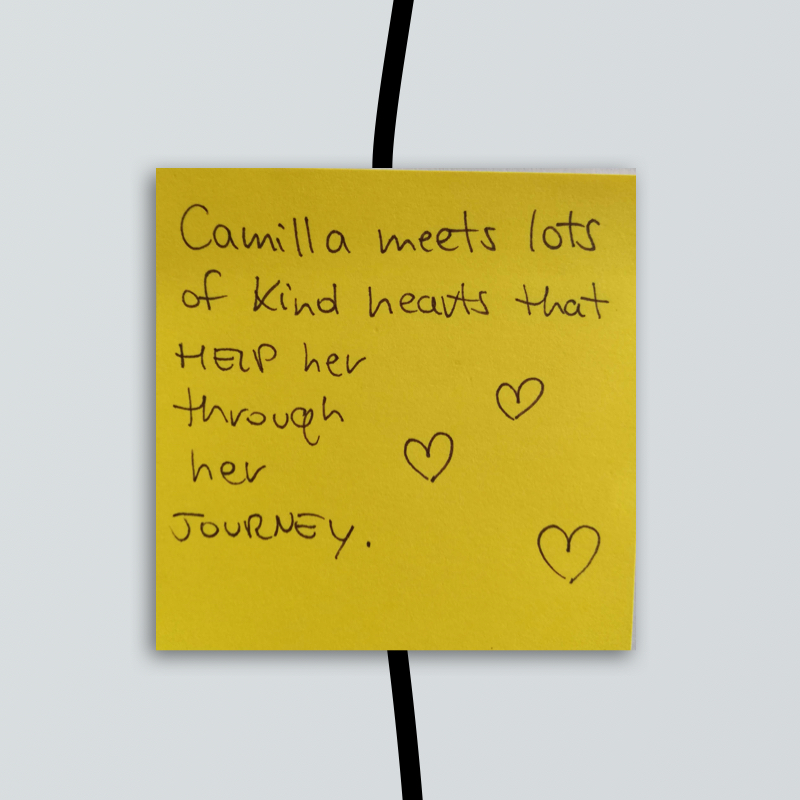 Camilla meets lots
of kind hearts that
HELP her
through
her
JOURNEY.